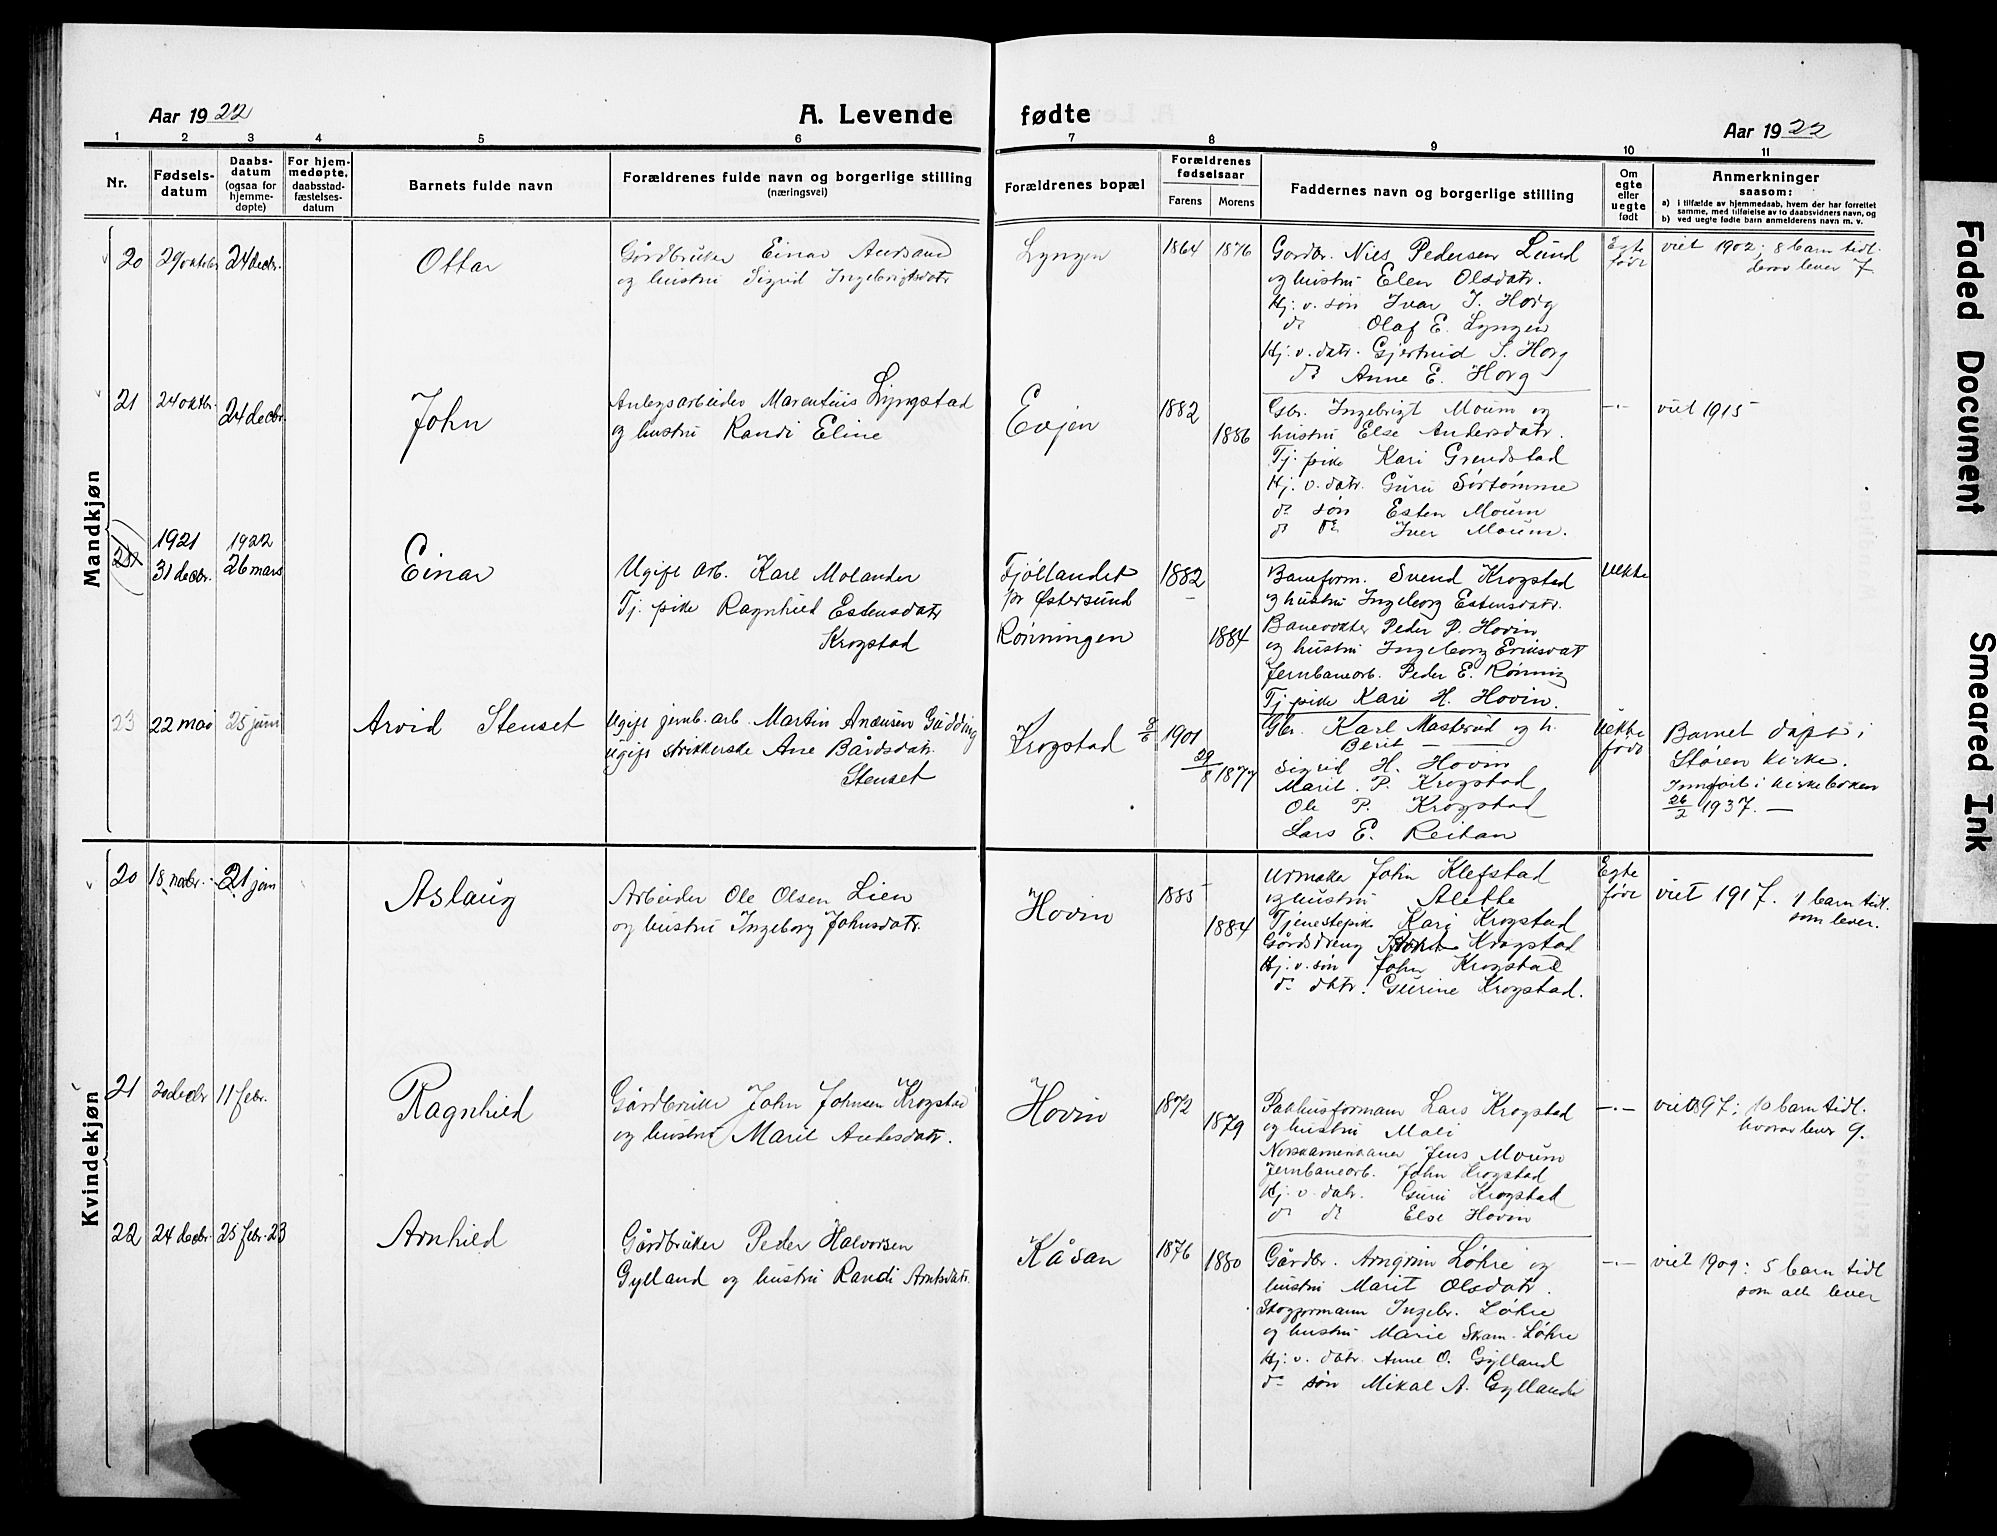 Aar 1922
A. Levende fødte
Aar 1922
1 2 3 4 5 6 7 8 9 10 11
Nr.
Fødsels-
datum
Daabs-
datum
(ogsaa for
hjemme-
døpte)
For hjem-
medøpte,
daabsstad-
fæstelses-
datum
Barnets fulde navn
Forældrenes fulde navn og borgerlige stilling
(næringsvei)
Forældrenes bopæl
Forældrenes
fødselsaar
Farens Morens
Faddernes navn og borgerlige stilling
Om
egte
eller
uegte
født
Anmerkninger
saasom:
a) i tilfælde av hjemmedaab, hvem der har forrettet
samme, med tilføielse av to daabsvidners navn, og
b) ved uegte fødte barn anmelderens navn m. v.
Mandkjøn
20 29 oktobr 24 decbr.
Ottar
Gårdbruker Einar
og hustru Sigrid Ingebrigtsdatr
Lyngen
1864 1876
Gardbr. Nils Pedersen Lund
og hustru Elen Olsdatr.
Hj. v. søn Ivar I. Horg
do Olaf E. Lyngen
Hj. v. datr. Gjertrud I. Horg
do Anne E. Horg
Egte
født
viet 1902; 8 barn tidl.
derav lever 7
21 24 oktbr. 24 decbr.
John
Anlegsarbeider Marentius Lyngstad
og hustru Randi Eline
Evjen
1882
1886
Gbr. Ingebrigt Moum og
hustru Else Andersdatr.
Tj. pike Kari Grendstad
Hj. v. datr. Guru Sørtømme
do søn Esten Moum
do do Iver Moum.
-"-
viet 1915
22
1921
31 decbr.
1922
26 mars
Einar
Ugift arb. Karl Molander
Tj. pike Ragnhild Estensdatr
Krogstad
Fjøllandet
pr Østersund
Rønningen
1882
1884
Baneform. Svend Krogstad
og hustru Ingeborg Estensdatr.
Banevokter Peder P. Hovin
og hustru Ingeborg Eriksdat
Jernbanearb. Peder E. Rønning
Tj. pike Kari H. Hovin.
Uekte
23 22 mai 25 juni
Arvid Stenset
Ugift jernb. arb. Martin Andersen Gudding
Ugift strikkerske Ane Bårdsdatr.
Stenset
Krogstad
8/6 1901
29/8 1877
Gbr. Karl Masterud og h.
Berit —
Sigrid H. Hovin
Marit P. Krogstad
Ole P. Krogstad
Lars E. Reitan
Uekte
født
Barnet døpt i
Støren kirke.
Innført i kirkeboken
26/2 1937. —
Kvindekjøn
20 18 novbr. 21 jan
Aslaug
Arbeider Ole Olsen Lien
og hustru Ingeborg Johnsdatr.
Hovin
1885
1884
Urmaker John Klefstad
og hustru Alette
Tjenestepike Kari Krogstad
Gårdsdreng Krogstad
Hj. v. søn John Krogstad
do datr. Gurine Krogstad.
Egte
født
viet 1917. 1 barn tidl.
som lever.
21 20 decbr 11 febr.
Ragnhild
Gårdbruker John Johnsen Krogstad
og hustru Marit Andersdatr.
Hovin
1872
1879
Pakhusformann Lars Krogstad
og hustru Mali
Norskamerikaner Jens Moum
Jernbanearb. John Krogstad
Hj. v. datr. Guru Krogstad
do do Else Hovin
-"-
viet 97; 10 barn tidl.
hvorav lever 9.
22 24 decbr. 25 febr. 23
Arnhild
Gårdbruker Peder Halvorsen
Gylland og hustru Randi Arntsdatr.
Kåsan
1876
1880
Gårdbr. Arngrim Løhre og
hustru Marit Olsdatr.
Skogformann Ingebr. Løhre
og hustru Marie Skam. Løhre
Hj. v. datr. Anne O. Gylland
do søn Mikal A. Gylland
-"-
viet 1909: 5 barn tidl
som alle lever
Faded Document
Smeared Ink